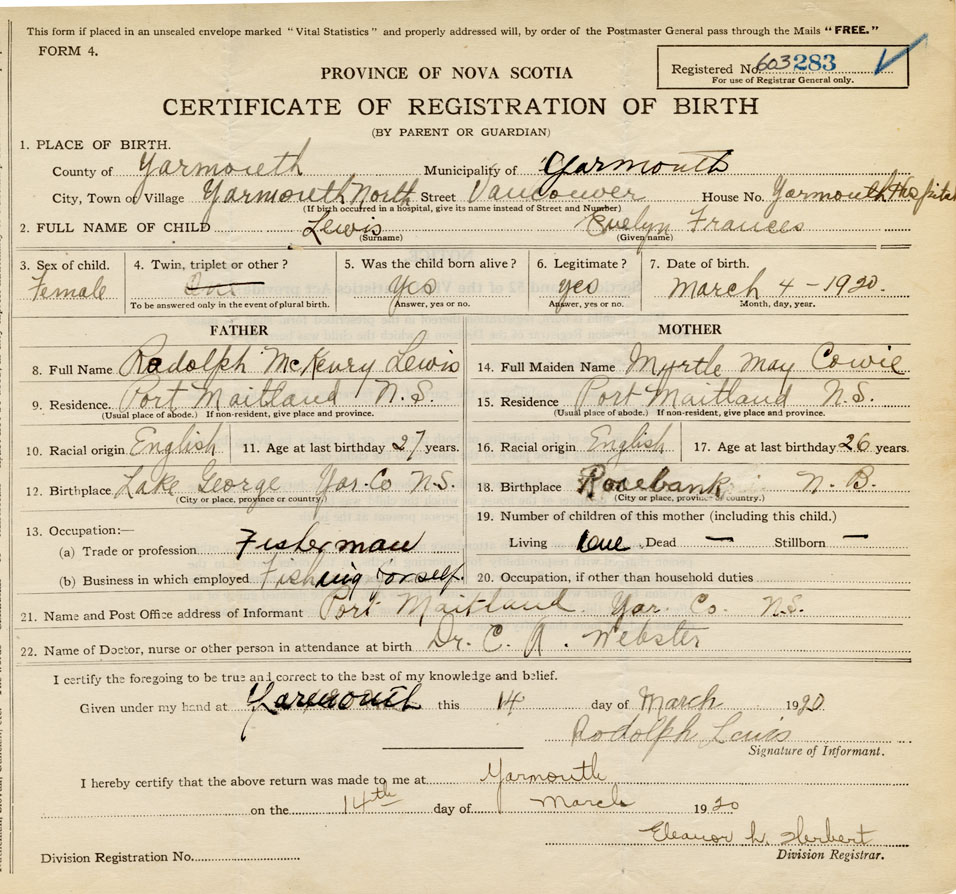 This form if placed in an unsealed envelope marked "Vital Statistics" and properly addressed will, by order of the Postmaster General pass through the Mails "FREE."
FORM 4.
Registered No. 603283
For use of Registrar General only.
PROVINCE OF NOVA SCOTIA
CERTIFICATE OF REGISTRATION OF BIRTH
(BY PARENT OR GUARDIAN)
1. PLACE OF BIRTH.
County of Yarmouth Municipality of Yarmouth
City, Town or Village Yarmouth North Street Vancouver House No. Yarmouth Hospital
(If birth occurred in a hospital, give its name instead of Street and Number)
2. FULL NAME OF CHILD Lewis Evelyn Frances
(Surname) (Given name)
3. Sex of child. 4. Twin, triplet or other? 5. Was the child born alive? 6. Legitimate? 7. Date of birth.
Female One yes yes March 4 - 1920.
To be answered only in the event of plural birth. Answer, yes or no. Answer, yes or no. Month, day, year.
FATHER MOTHER
8. Full Name Rodolph McKenry Lewis 14. Full Maiden Name Myrtle May Cowie
9. Residence. Port Maitland N.S. 15. Residence Port Maitland N.S.
(Usual place of abode.) If non-resident, give place and province. (Usual place of abode.) If non-resident, give place and province.
10. Racial origin English 11. Age at last birthday 27 years. 16. Racial origin English 17. Age at last birthday 26 years.
12. Birthplace Lake George Yar. Co N.S. 18. Birthplace Rosebank N. B.
(City or place, province or country.) (City or place, province or country.)
13. Occupation:— 19. Number of children of this mother (including this child.)
(a) Trade or profession Fisherman Living one Dead — Stillborn —
(b) Business in which employed Fishing for self. 20. Occupation, if other than household duties
21. Name and Post Office address of Informant Port Maitland. Yar. Co. N.S.
22. Name of Doctor, nurse or other person in attendance at birth Dr. C. A. Webster
I certify the foregoing to be true and correct to the best of my knowledge and belief.
Given under my hand at Yarmouth this 14 day of March 1920.
Rodolph Lewis
Signature of Informant.
I hereby certify that the above return was made to me at Yarmouth
on the 14th day of March 1920
Eleanor L. Herbert
Division Registrar.
Division Registration No.